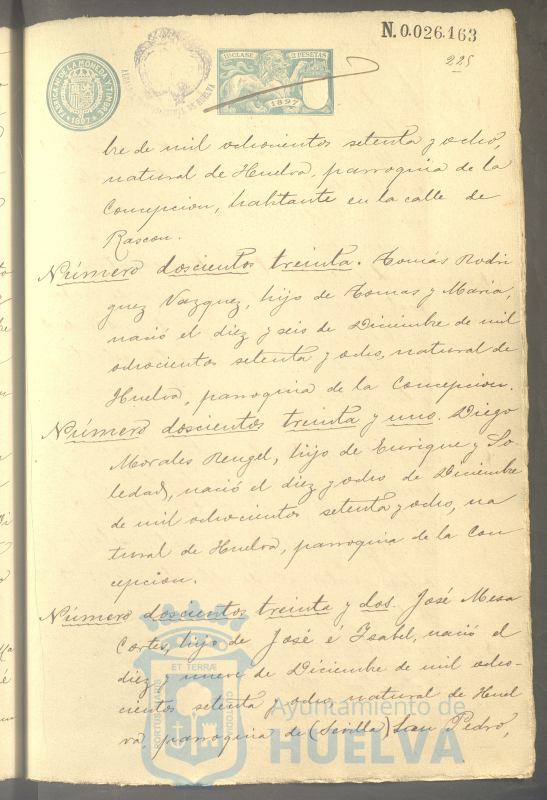 N.0.026.163
225
FABRICA N. DE LA MONEDA Y TIMBRE
1897
11ª CLASE
2 PESETAS
1897
DE HUELVA
bre de mil ochocientos setenta y ocho,
natural de Huelva, parroquia de la
Concepcion, habitante en la calle de
Rascon.
Número doscientos treinta. Tomás Rodri
guez Vazquez, hijo de Tomas y Maria,
nació el diez y seis de Diciembre de mil
ochocientos setenta y ocho, natural de
Huelva, parroquia de la Concepcion.
Número doscientos treinta y uno. Diego
Morales Rengel, hijo de Enrique y So
ledad, nació el diez y ocho de Diciembre
de mil ochocientos setenta y ocho, na
tural de Huelva, parroquia de la Con
cepcion.
Número doscientos treinta y dos. José Mesa
Cortes, hijo de José é Isabel, nació el
diez y nueve de Diciembre de mil ocho-
cientos setenta y ocho, natural de Huel
va, parroquia de (Sevilla) San Pedro,
ET TERRÆ
PORTUS MARIS
CUSTODIA
Ayuntamiento de
HUELVA